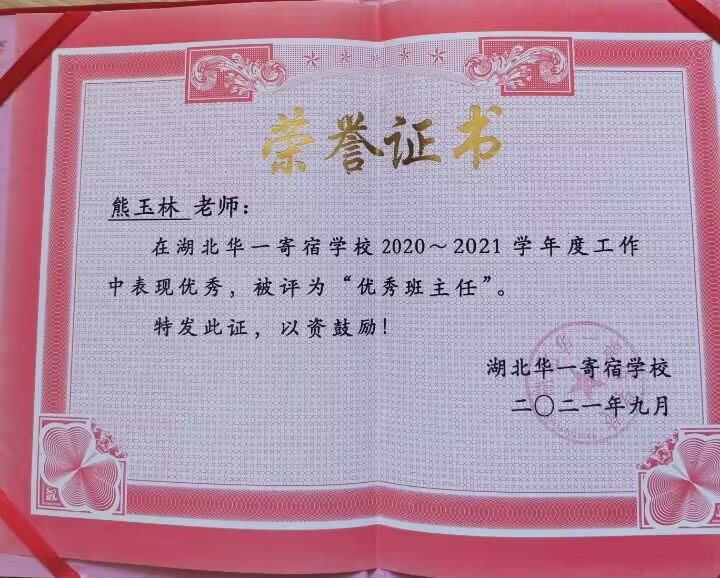 荣誉证书
熊玉林 老师：
在湖北华一寄宿学校2020～2021学年度工作
中表现优秀，被评为“优秀班主任”。
特发此证，以资鼓励！
湖北华一寄宿学校
二〇二一年九月